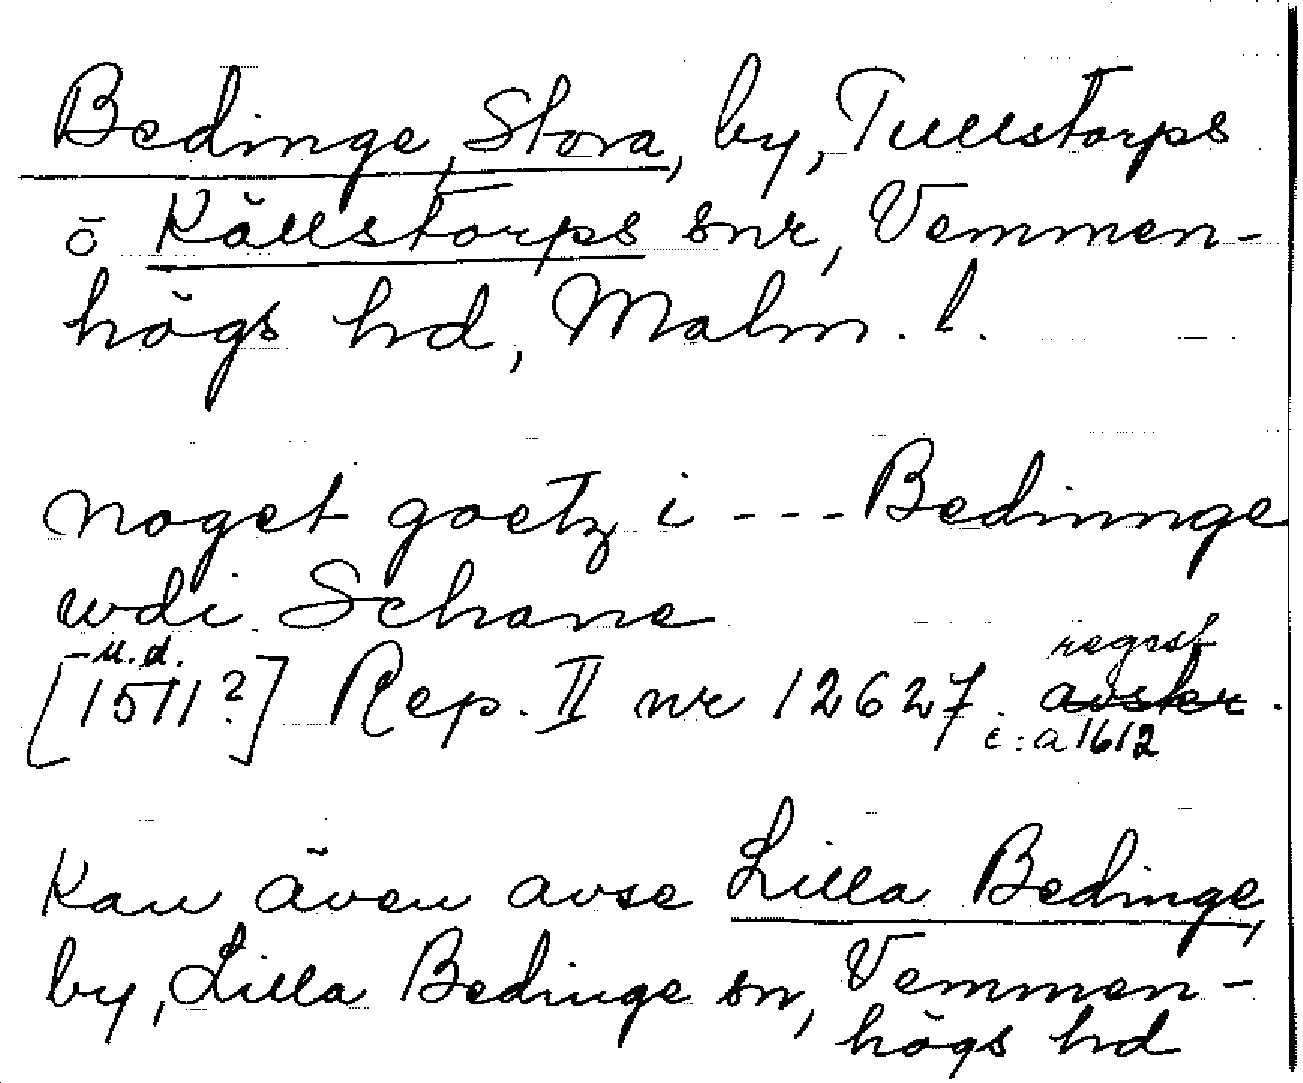 Bedinge, Stora, by, Tullstorps
o Källstorps snr, Vemmen-
högs hd, Malm. l.
noget goetz i --- Bedininge
wdi Schane
u.d.
regest
[1511?] Rep. II nr 12627. avskr.
c:a 1612
Kan även avse Lilla Bedinge,
by, Lilla Bedinge sn, Vemmen-
högs hd